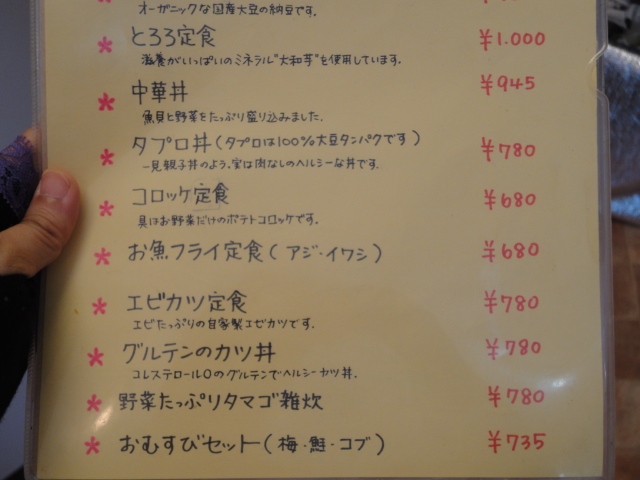 オーガニックな国産大豆の納豆です。
* とろろ定食 ¥1.000
滋養がいっぱいのミネラル"大和芋"を使用しています。
* 中華丼 ¥945
魚貝と野菜をたっぷり盛り込みました。
* タプロ丼(タプロは100%大豆タンパクです) ¥780
一見親子丼のよう。実は肉なしのヘルシーな丼です。
* コロッケ定食 ¥680
具はお野菜だけのポテトコロッケです。
* お魚フライ定食(アジ・イワシ) ¥680
* エビカツ定食 ¥780
エビたっぷりの自家製エビカツです。
* グルテンのカツ丼 ¥780
コレステロール0のグルテンでヘルシーカツ丼。
* 野菜たっぷりタマゴ雑炊 ¥780
* おむすびセット(梅・鮭・コブ) ¥735